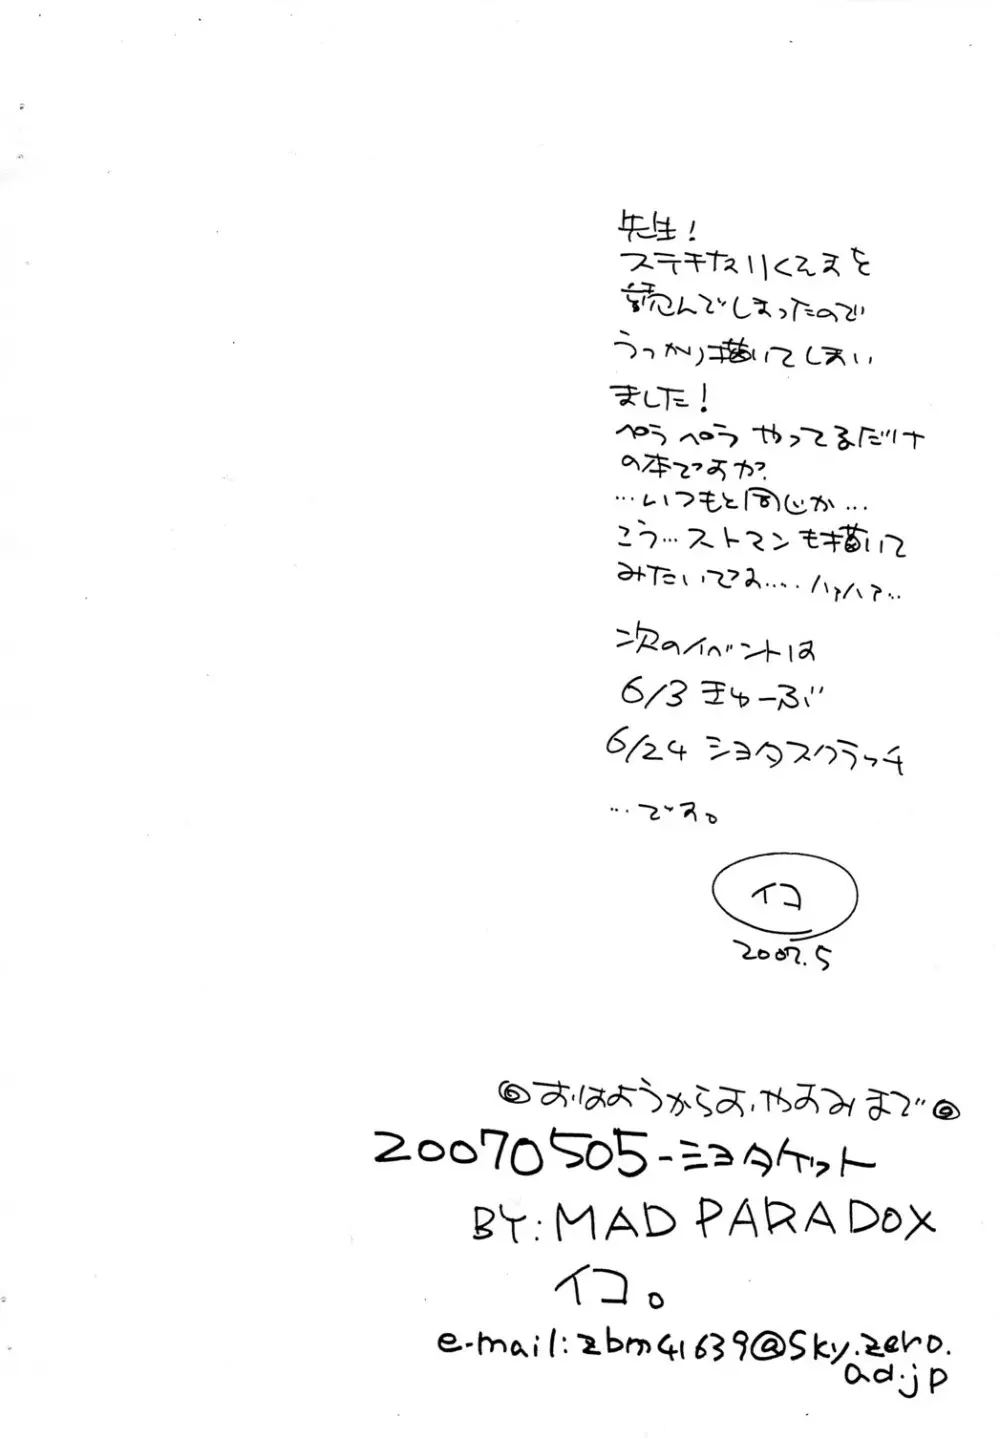 先生!
ステキなリくえすを
読んでしまったので
うっかり描いてしまい
ました!
ペラペラやってるだけ
の本ですか?
…いつもと同じか…
こう…ストマンも描いて
みたいでお….ハァハァ…
次のイベントは
6/3 きゅーぶ
6/24 ショタスクラッチ
…です。
イコ
2007.5
◎おはようからおやすみまで◎
20070505-ショタケット
BY:MAD PARADOX
イコ。
e-mail:zbm41639@sky.zero.
ad.jp